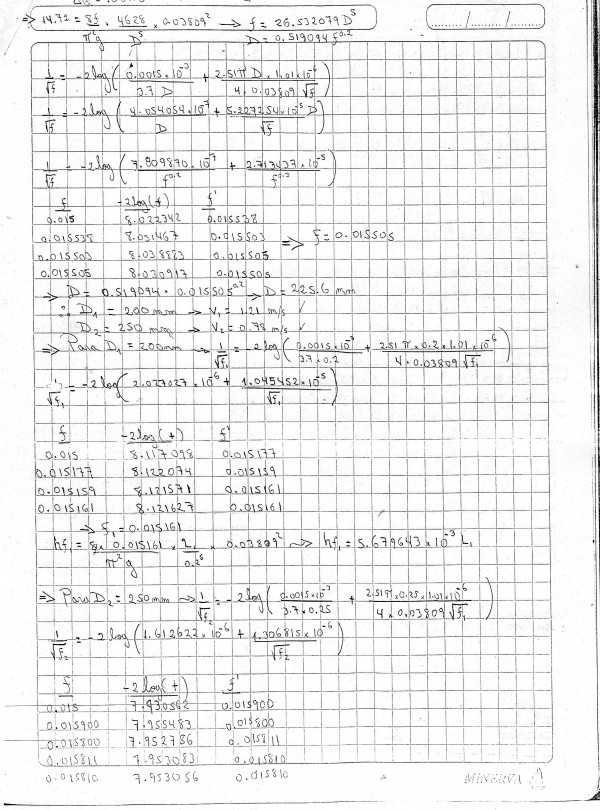 ⇒ 14.72 = 8f/π²g · 4628/D⁵ × 0.03809² → f = 26.532079 D⁵
D = 0.519094 f^0.2
1/√f = -2log( 0.0015×10⁻³/3.7 D + 2.51 π D × 1.01×10⁻⁶/4×0.03809 √f )
1/√f = -2log( 4.054054×10⁻⁷/D + 5.227254×10⁻⁵ D/√f )
1/√f = -2log( 7.809870×10⁻⁷/f^0.2 + 2.713437×10⁻⁵/f^0.3 )
f -2log(+) f'
0.015 8.022342 0.015538
0.015538 8.031467 0.015503 ⇒ f = 0.015505
0.015503 8.030883 0.015505
0.015505 8.030917 0.015505
⇒ D = 0.519094 · 0.015505^0.2 → D = 225.6 mm
∴ D₁ = 200 mm → V₁ = 1.21 m/s ✓
D₂ = 250 mm → V₂ = 0.78 m/s ✓
⇒ Para D₁ = 200mm → 1/√f₁ = -2log( 0.0015×10⁻³/3.7×0.2 + 2.51 π × 0.2 × 1.01×10⁻⁶/4×0.03809 √f₁ )
1/√f₁ = -2log( 2.027027×10⁻⁶ + 1.045452×10⁻⁵/√f₁ )
f -2log(+) f'
0.015 8.117098 0.015177
0.015177 8.122074 0.015159
0.015159 8.121571 0.015161
0.015161 8.121627 0.015161
→ f₁ = 0.015161
hf₁ = 8× 0.015161/π²g × L₁/0.2⁵ × 0.03809² → hf₁ = 5.679643×10⁻³ L₁
⇒ Para D₂ = 250 mm → 1/√f₂ = -2log( 0.0015×10⁻³/3.7×0.25 + 2.51π×0.25×1.01×10⁻⁶/4×0.03809 √f₁ )
1/√f₂ = -2log( 1.612622×10⁻⁶ + 1.306815×10⁻⁶/√f₂ )
f -2log(+) f'
0.015 7.930562 0.015900
0.015900 7.955483 0.015800
0.015800 7.952786 0.015811
0.015811 7.953083 0.015810
0.015810 7.953056 0.015810
MINERVA